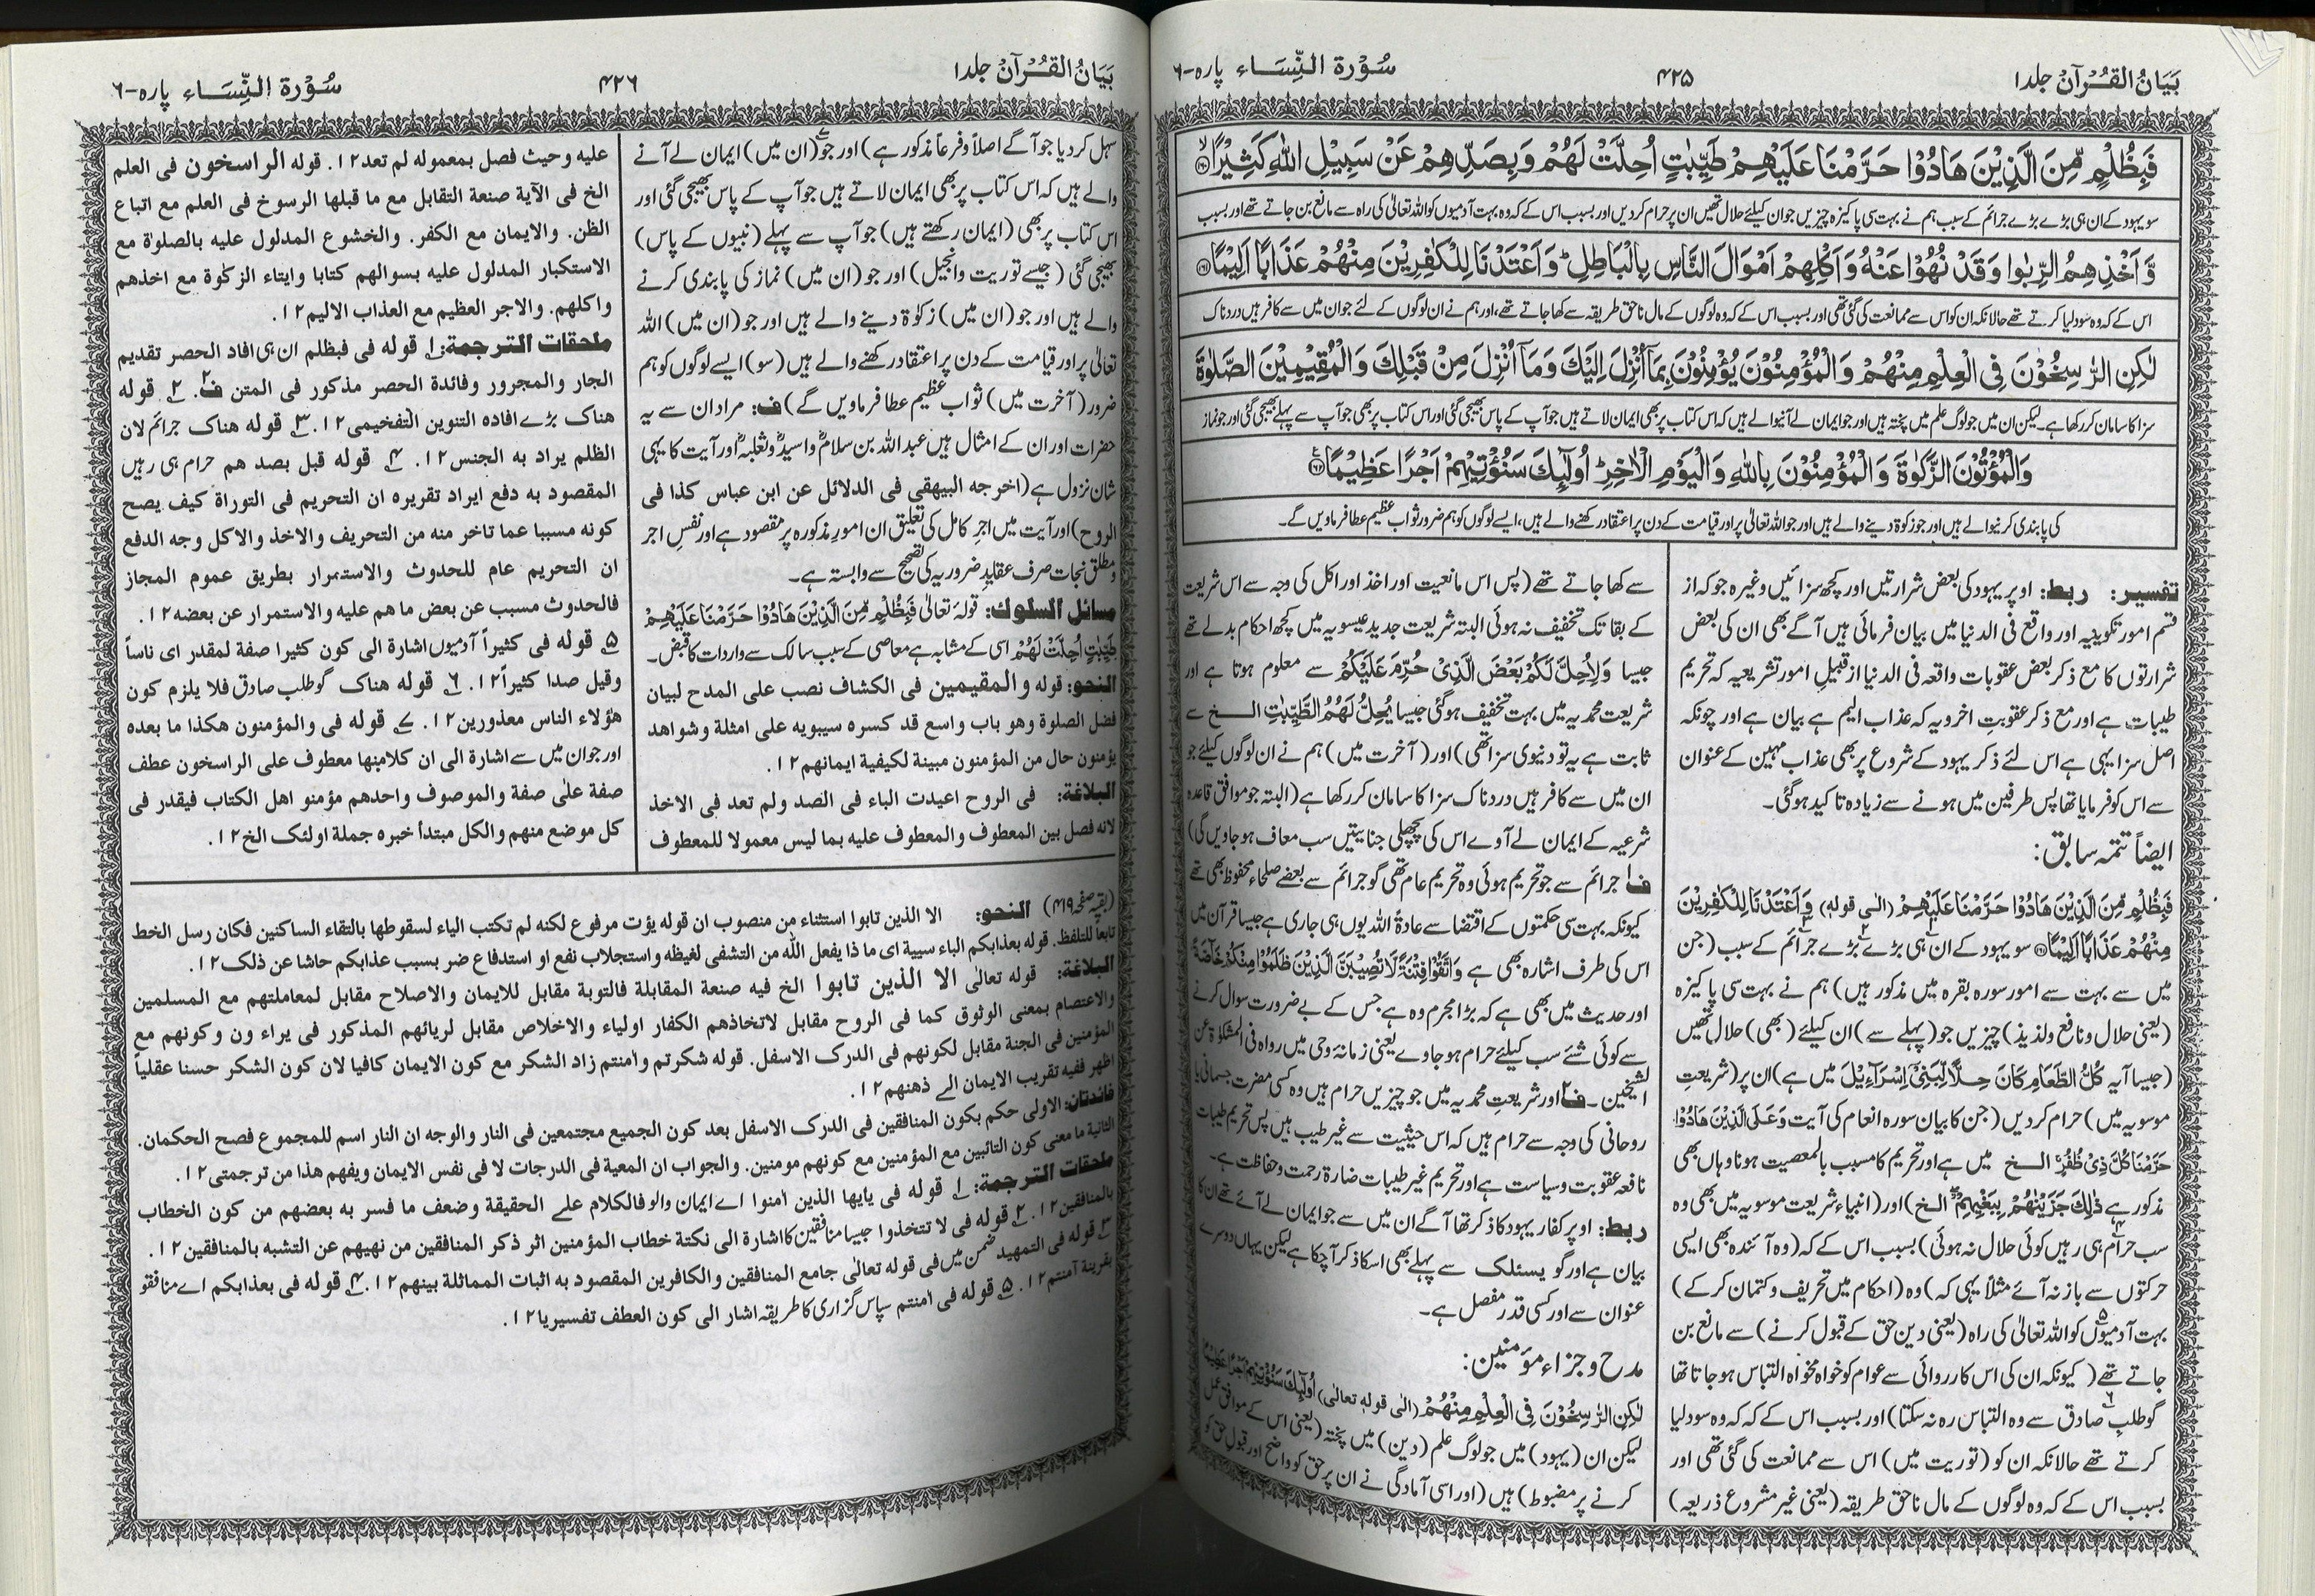 بَيَانُ القُرْآن جلد ۱
۴۲۵
سُوْرَة النِّسَاء پارہ-۶
فَبِظُلْمٍ مِّنَ الَّذِيْنَ هَادُوْا حَرَّمْنَا عَلَيْهِمْ طَيِّبٰتٍ اُحِلَّتْ لَهُمْ وَبِصَدِّهِمْ عَنْ سَبِيْلِ اللّٰهِ كَثِيْرًا
سو یہود کے ان ہی بڑے بڑے جرائم کے سبب ہم نے بہت سی پاکیزہ چیزیں جو ان کیلئے حلال تھیں ان پر حرام کردیں اور بسبب اس کے کہ وہ بہت آدمیوں کو اللہ تعالیٰ کی راہ سے مانع بن جاتے تھے اور بسبب
وَّاَخْذِهِمُ الرِّبٰوا وَقَدْ نُهُوْا عَنْهُ وَاَكْلِهِمْ اَمْوَالَ النَّاسِ بِالْبَاطِلِ ؕ وَاَعْتَدْنَا لِلْكٰفِرِيْنَ مِنْهُمْ عَذَابًا اَلِيْمًا
اس کے کہ وہ سود لیا کرتے تھے حالانکہ ان کو اس سے ممانعت کی گئی تھی اور بسبب اس کے کہ وہ لوگوں کے مال ناحق طریقہ سے کھا جاتے تھے، اور ہم نے ان لوگوں کے لئے جو ان میں سے کافر ہیں دردناک
لٰكِنِ الرّٰسِخُوْنَ فِي الْعِلْمِ مِنْهُمْ وَالْمُؤْمِنُوْنَ يُؤْمِنُوْنَ بِمَاۤ اُنْزِلَ اِلَيْكَ وَمَاۤ اُنْزِلَ مِنْ قَبْلِكَ وَالْمُقِيْمِيْنَ الصَّلٰوةَ
سزا کا سامان کر رکھا ہے۔ لیکن ان میں جو لوگ علم میں پختہ ہیں اور جو ایمان لے آنیوالے ہیں کہ اس کتاب پر بھی ایمان لاتے ہیں جو آپ کے پاس بھیجی گئی اور اس کتاب پر بھی جو آپ سے پہلے بھیجی گئی اور جو نماز
وَالْمُؤْتُوْنَ الزَّكٰوةَ وَالْمُؤْمِنُوْنَ بِاللّٰهِ وَالْيَوْمِ الْاٰخِرِ ؕ اُولٰٓئِكَ سَنُؤْتِيْهِمْ اَجْرًا عَظِيْمًا
کی پابندی کرنیوالے ہیں اور جو زکوٰۃ دینے والے ہیں اور جو اللہ تعالیٰ پر اور قیامت کے دن پر اعتقاد رکھنے والے ہیں، ایسے لوگوں کو ہم ضرور ثواب عظیم عطا فرماویں گے۔
تفسیر: ربط: اوپر یہود کی بعض شرارتیں اور کچھ سزائیں وغیرہ جو کہ از
قسم امور تکوینیہ اور واقع فی الدنیا میں بیان فرمائی ہیں آگے بھی ان کی بعض
شرارتوں کا مع ذکر بعض عقوبات واقعہ فی الدنیا از قبیل امور تشریعیہ کہ تحریم
طیبات ہے اور مع ذکر عقوبت اخرویہ کہ عذاب الیم ہے بیان ہے اور چونکہ
اصل سزا یہی ہے اس لئے ذکر یہود کے شروع پر بھی عذاب مہین کے عنوان
سے اس کو فرمایا تھا پس طرفین میں ہونے سے زیادہ تاکید ہوگئی۔
ایضاً تتمہ سابق:
فَبِظُلْمٍ مِّنَ الَّذِيْنَ هَادُوْا حَرَّمْنَا عَلَيْهِمْ (الٰی قولہ) وَاَعْتَدْنَا لِلْكٰفِرِيْنَ
مِنْهُمْ عَذَابًا اَلِيْمًا سو یہود کے ان ہی بڑے بڑے جرائم کے سبب (جن
میں سے بہت سے امور سورہ بقرہ میں مذکور ہیں) ہم نے بہت سی پاکیزہ
(یعنی حلال و نافع و لذیذ) چیزیں جو (پہلے سے) ان کیلئے (بھی) حلال تھیں
(جیسا آیہ كُلُّ الطَّعَامِ كَانَ حِلًّا لِّبَنِيْۤ اِسْرَآءِيْلَ میں ہے) ان پر (شریعت
موسویہ میں) حرام کردیں (جن کا بیان سورہ انعام کی آیت وَعَلَى الَّذِيْنَ هَادُوْا
حَرَّمْنَا كُلَّ ذِيْ ظُفُرٍ الخ میں ہے اور تحریم کا مسبب بالمعصیت ہونا وہاں بھی
مذکور ہے ذٰلِكَ جَزَيْنٰهُمْ بِبَغْيِهِمْ الخ) اور (انبیاء شریعت موسویہ میں بھی وہ
سب حرام ہی رہیں کوئی حلال نہ ہوئی) بسبب اس کے کہ (وہ آئندہ بھی ایسی
حرکتوں سے باز نہ آئے مثلاً یہی کہ) وہ (احکام میں تحریف و کتمان کرکے)
بہت آدمیوں کو اللہ تعالیٰ کی راہ (یعنی دین حق کے قبول کرنے) سے مانع بن
جاتے تھے (کیونکہ ان کی اس کارروائی سے عوام کو خواہ مخواہ التباس ہوجاتا تھا
گو طلب صادق سے وہ التباس رہ نہ سکتا) اور بسبب اس کے کہ کہ وہ سود لیا
کرتے تھے حالانکہ ان کو (توریت میں) اس سے ممانعت کی گئی تھی اور
بسبب اس کے کہ وہ لوگوں کے مال ناحق طریقہ (یعنی غیر مشروع ذریعہ)
سے کھا جاتے تھے (پس اس مانعیت اور اخذ اور اکل کی وجہ سے اس شریعت
کے بقا تک تخفیف نہ ہوئی البتہ شریعت جدیدہ عیسویہ میں کچھ احکام بدلے تھے
جیسا وَلِاُحِلَّ لَكُمْ بَعْضَ الَّذِيْ حُرِّمَ عَلَيْكُمْ سے معلوم ہوتا ہے اور
شریعت محمدیہ میں بہت تخفیف ہوگئی جیسا يُحِلُّ لَهُمُ الطَّيِّبٰتِ الخ سے
ثابت ہے یہ تو دنیوی سزا تھی) اور (آخرت میں) ہم نے ان لوگوں کیلئے جو
ان میں سے کافر ہیں دردناک سزا کا سامان کر رکھا ہے (البتہ جو موافق قاعدہ
شرعیہ کے ایمان لے آوے اس کی پچھلی جنایتیں سب معاف ہوجاویں گی)
ف۱ جرائم سے جو تحریم ہوئی وہ تحریم عام تھی گو جرائم سے بعضے صلحاء محفوظ بھی تھے
کیونکہ بہت سی حکمتوں کے اقتضا سے عادۃ اللہ یوں ہی جاری ہے جیسا قرآن میں
اس کی طرف اشارہ بھی ہے وَاتَّقُوْا فِتْنَةً لَّا تُصِيْبَنَّ الَّذِيْنَ ظَلَمُوْا مِنْكُمْ خَآصَّةً
اور حدیث میں بھی ہے کہ بڑا مجرم وہ ہے جس کے بے ضرورت سوال کرنے
سے کوئی شئے سب کیلئے حرام ہوجاوے یعنی زمانۂ وحی میں رواہ فی المشکوٰۃ عن
الشیخین۔ ف۲ اور شریعت محمدیہ میں جو چیزیں حرام ہیں وہ کسی مضرت جسمانی یا
روحانی کی وجہ سے حرام ہیں کہ اس حیثیت سے غیر طیب ہیں پس تحریم طیبات
نافعہ عقوبت و سیاست ہے اور تحریم غیر طیبات ضارۃ رحمت و حفاظت ہے۔
ربط: اوپر کفار یہود کا ذکر تھا آگے ان میں سے جو ایمان لے آئے تھے ان کا
بیان ہے اور گو یسئلک سے پہلے بھی اسکا ذکر آچکا ہے لیکن یہاں دوسرے
عنوان سے اور کسی قدر مفصل ہے۔
مدح و جزاء مؤمنین:
لٰكِنِ الرّٰسِخُوْنَ فِي الْعِلْمِ مِنْهُمْ (الٰی قولہ تعالٰی) اُولٰٓئِكَ سَنُؤْتِيْهِمْ اَجْرًا عَظِيْمًا
لیکن ان (یہود) میں جو لوگ علم (دین) میں پختہ (یعنی اس کے موافق عمل
کرنے پر مضبوط) ہیں (اور اسی آمادگی نے ان پر حق کو واضح اور قبول حق کو
بَيَانُ القُرْآن جلد ۱
۴۲۶
سُوْرَة النِّسَاء پارہ-۶
سہل کردیا جو آگے اصلاً و فرعاً مذکور ہے) اور جو (ان میں) ایمان لے آنے
والے ہیں کہ اس کتاب پر بھی ایمان لاتے ہیں جو آپ کے پاس بھیجی گئی اور
اس کتاب پر بھی (ایمان رکھتے ہیں) جو آپ سے پہلے (نبیوں کے پاس)
بھیجی گئی (جیسے توریت و انجیل) اور جو (ان میں) نماز کی پابندی کرنے
والے ہیں اور جو (ان میں) زکوٰۃ دینے والے ہیں اور جو (ان میں) اللہ
تعالیٰ پر اور قیامت کے دن پر اعتقاد رکھنے والے ہیں (سو) ایسے لوگوں کو ہم
ضرور (آخرت میں) ثواب عظیم عطا فرماویں گے) ف: مراد ان سے یہ
حضرات اور ان کے امثال ہیں عبد اللہ بن سلامؓ و اسیدؓ و ثعلبہؓ اور آیت کا یہی
شان نزول ہے (اخرجه البيهقى فى الدلائل عن ابن عباس كذا فى
الروح) اور آیت میں اجر کامل کی تعلیق ان امور مذکورہ پر مقصود ہے اور نفس اجر
و مطلق نجات صرف عقاید ضروریہ کی تصحیح سے وابستہ ہے۔
مسائل السلوک: قولہ تعالیٰ فَبِظُلْمٍ مِّنَ الَّذِيْنَ هَادُوْا حَرَّمْنَا عَلَيْهِمْ
طَيِّبٰتٍ اُحِلَّتْ لَهُمْ اسی کے مشابہ ہے معاصی کے سبب سالک سے واردات کا قبض۔
النحو: قوله والمقيمين فى الكشاف نصب على المدح لبيان
فضل الصلوة وهو باب واسع قد كسره سيبويه على امثلة وشواهد
يؤمنون حال من المؤمنون مبينة لكيفية ايمانهم ۱۲.
البلاغة: فى الروح اعيدت الباء فى الصد ولم تعد فى الاخذ
لانه فصل بين المعطوف والمعطوف عليه بما ليس معمولا للمعطوف
عليه وحيث فصل بمعموله لم تعد ۱۲. قوله الراسخون فى العلم
الخ فى الآية صنعة التقابل مع ما قبلها الرسوخ فى العلم مع اتباع
الظن. والايمان مع الكفر. والخشوع المدلول عليه بالصلوة مع
الاستكبار المدلول عليه بسوالهم كتابا وايتاء الزكوة مع اخذهم
واكلهم. والاجر العظيم مع العذاب الاليم ۱۲.
ملحقات الترجمة: ۱ قوله فى فبظلم ان ہی افاد الحصر تقديم
الجار والمجرور وفائدة الحصر مذكور فى المتن ف۲. ۲ قوله
هناك بڑے افاده التنوين التفخيمى ۱۲. ۳ قوله هناك جرائم لان
الظلم يراد به الجنس ۱۲. ۴ قوله قبل بصد هم حرام ہی رہیں
المقصود به دفع ايراد تقريره ان التحريم فى التوراة كيف يصح
كونه مسببا عما تاخر منه من التحريف والاخذ والاكل وجه الدفع
ان التحريم عام للحدوث والاستمرار بطريق عموم المجاز
فالحدوث مسبب عن بعض ما هم عليه والاستمرار عن بعضه ۱۲.
۵ قوله فى كثيراً آدمیوں اشارة الى كون كثيرا صفة لمقدر اى ناساً
وقيل صدا كثيراً ۱۲. ۶ قوله هناك گو طلب صادق فلا يلزم كون
هؤلاء الناس معذورين ۱۲. ۷ قوله فى والمؤمنون هكذا ما بعده
اور جو ان میں سے اشارة الى ان كلا منها معطوف على الراسخون عطف
صفة على صفة والموصوف واحدهم مؤمنو اهل الكتاب فيقدر فى
كل موضع منهم والكل مبتدأ خبره جملة اولئك الخ ۱۲.
(بقیہ صفحہ ۴۱۹) النحو: الا الذين تابوا استثناء من منصوب ان قوله يؤت مرفوع لكنه لم تكتب الياء لسقوطها بالتقاء الساكنين فكان رسل الخط
تابعا للتلفظ. قوله بعذابكم الباء سببية اى ما ذا يفعل الله من التشفى لغيظه واستجلاب نفع او استدفاع ضر بسبب عذابكم حاشا عن ذلك ۱۲.
البلاغة: قوله تعالى الا الذين تابوا الخ فيه صنعة المقابلة فالتوبة مقابل للايمان والاصلاح مقابل لمعاملتهم مع المسلمين
والاعتصام بمعنى الوثوق كما فى الروح مقابل لاتخاذهم الكفار اولياء والاخلاص مقابل لريائهم المذكور فى يراء ون وكونهم مع
المؤمنين فى الجنة مقابل لكونهم فى الدرك الاسفل. قوله شكرتم وامنتم زاد الشكر مع كون الايمان كافيا لان كون الشكر حسنا عقلياً
اظهر ففيه تقريب الايمان الے ذهنهم ۱۲.
فائدتان: الاولى حكم بكون المنافقين فى الدرك الاسفل بعد كون الجميع مجتمعين فى النار والوجه ان النار اسم للمجموع فصح الحكمان.
الثانية ما معنى كون التائبين مع المؤمنين مع كونهم مومنين. والجواب ان المعية فى الدرجات لا فى نفس الايمان ويفهم هذا من ترجمتى ۱۲.
ملحقات الترجمة: ۱ قوله فى يايها الذين امنوا اے ایمان والو فالكلام علے الحقيقة وضعف ما فسر به بعضهم من كون الخطاب
بالمنافقين ۱۲. ۲ قوله فى لا تتخذوا جیسا منافقین کا اشارة الى نكتة خطاب المؤمنين اثر ذكر المنافقين من نهيهم عن التشبه بالمنافقين ۱۲.
۳ قوله فى التمهيد ضمن میں فى قوله تعالى جامع المنافقين والكافرين المقصود به اثبات المماثلة بينهم ۱۲. ۴ قوله فى بعذابكم اے منافقو
بقرينة آمنتم ۱۲. ۵ قوله فى امنتم سپاس گزاری کا طریقہ اشار الى كون العطف تفسيريا ۱۲.